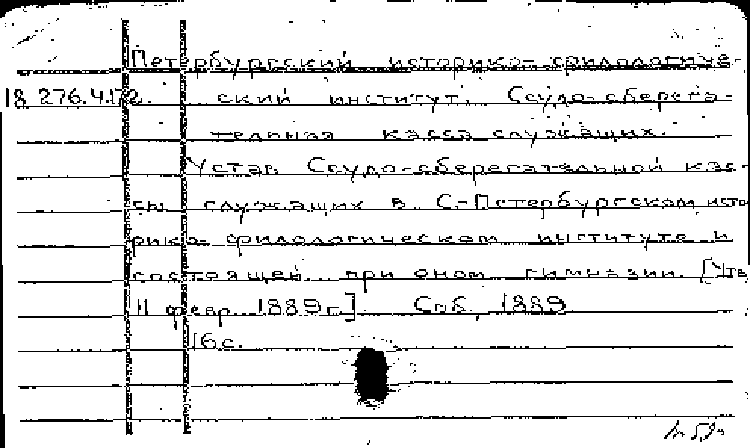 Петербургский историко-филологиче-
18.276.4.172. ский институт. Ссудо-сберега-
тельная касса служащих.
Устав Ссудо-сберегательной кас-
сы служащих в С.-Петербургском исто-
рико-филологическом институте и
состоящей при оном гимназии. [Утв.
11 февр. 1889 г.] Спб, 1889
16 с.